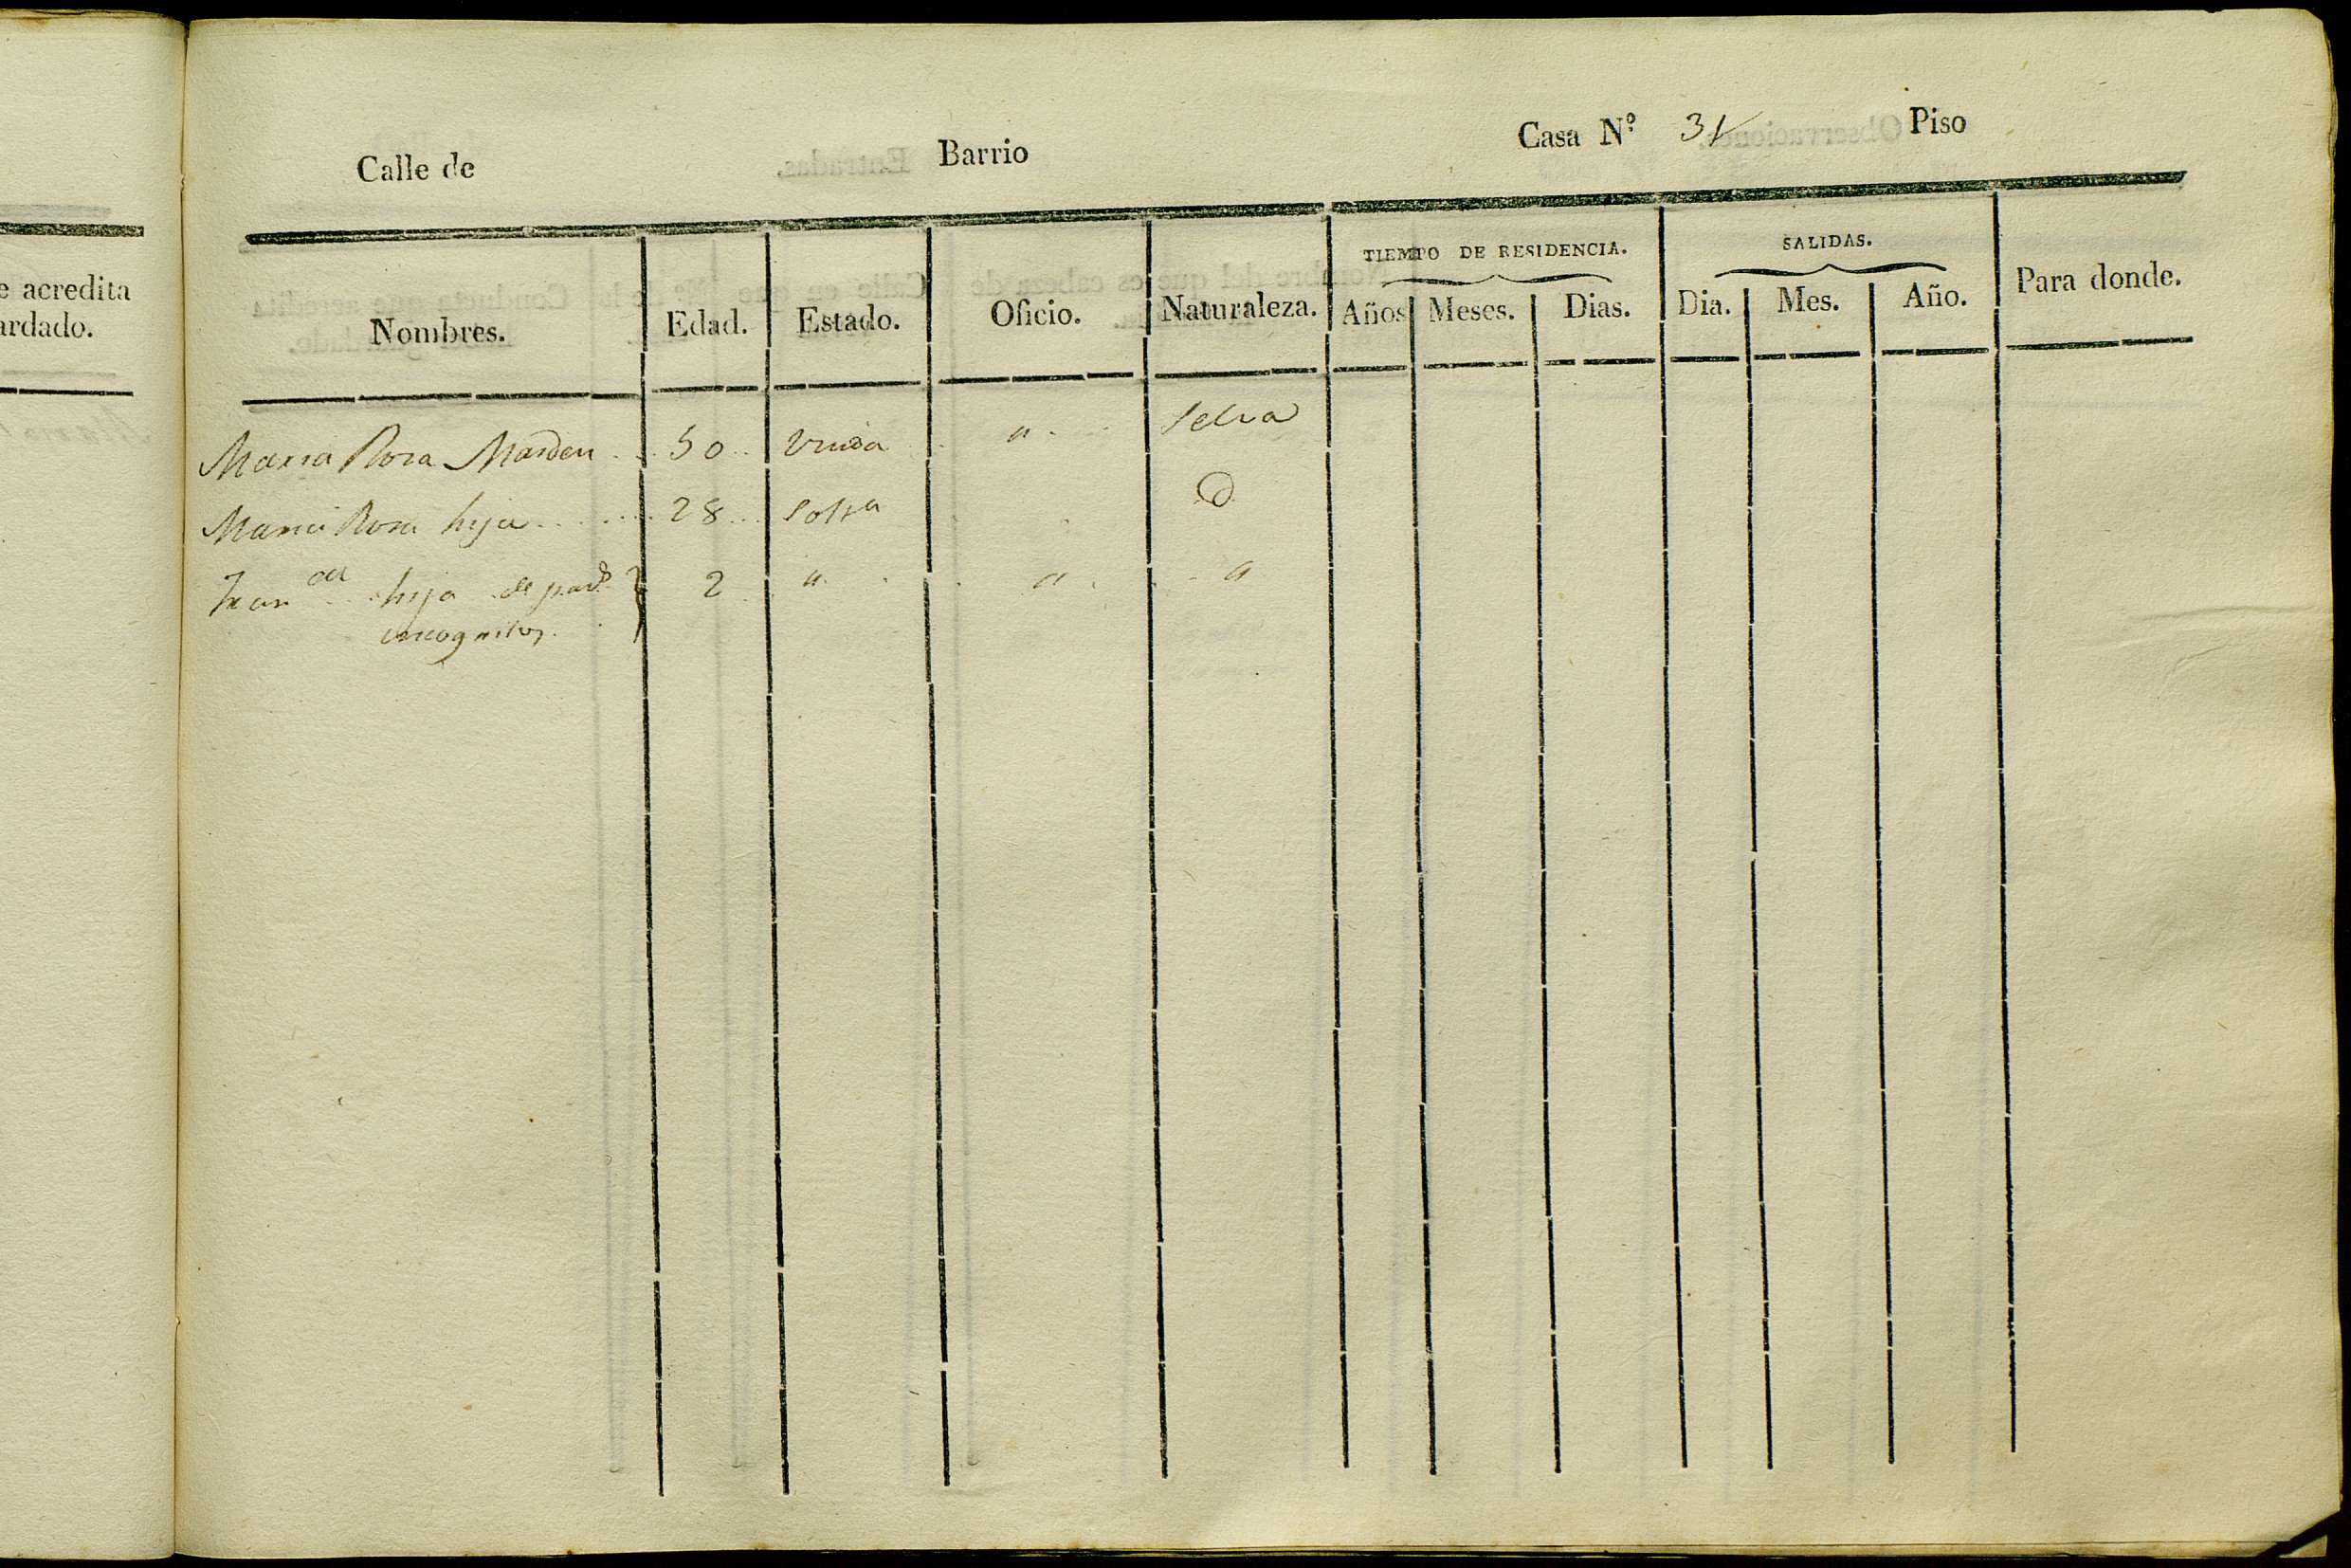 e acredita
ardado.
Calle de Barrio Casa Nº 31 Piso
TIEMPO DE RESIDENCIA. SALIDAS.
Nombres. Edad. Estado. Oficio. Naturaleza. Años Meses. Dias. Dia. Mes. Año. Para donde.
Maria Rosa 50 Viuda " Selva
Maria Rosa hija 28 Solta
hija de pads 2 " " "
incognitos